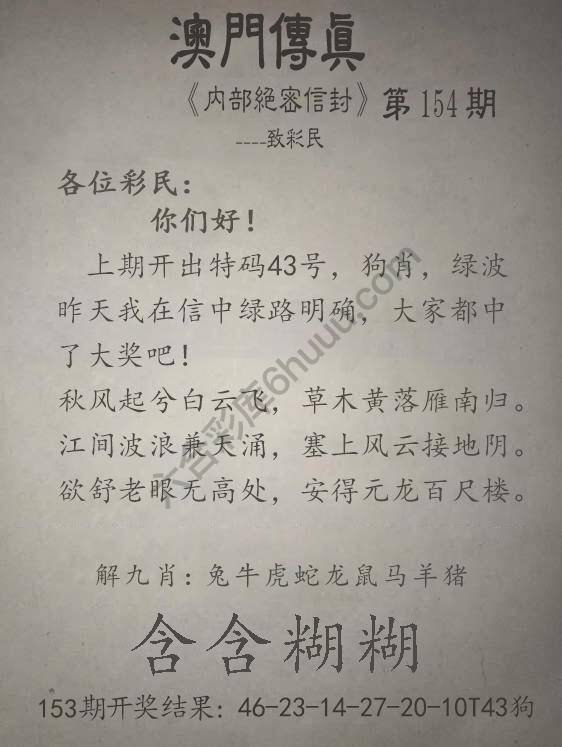 澳門傳眞
《内部絕密信封》第154期
----致彩民
各位彩民：
你们好！
上期开出特码43号，狗肖，绿波
昨天我在信中绿路明确，大家都中
了大奖吧！
秋风起兮白云飞，草木黄落雁南归。
江间波浪兼天涌，塞上风云接地阴。
欲舒老眼无高处，安得元龙百尺楼。
解九肖：兔牛虎蛇龙鼠马羊猪
含含糊糊
153期开奖结果：46-23-14-27-20-10T43狗
六合彩库6huuu.com